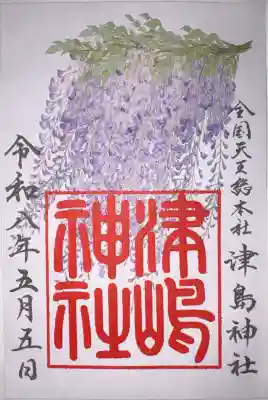 全国天王総本社 津島神社
津嶋神社
令和八年五月五日